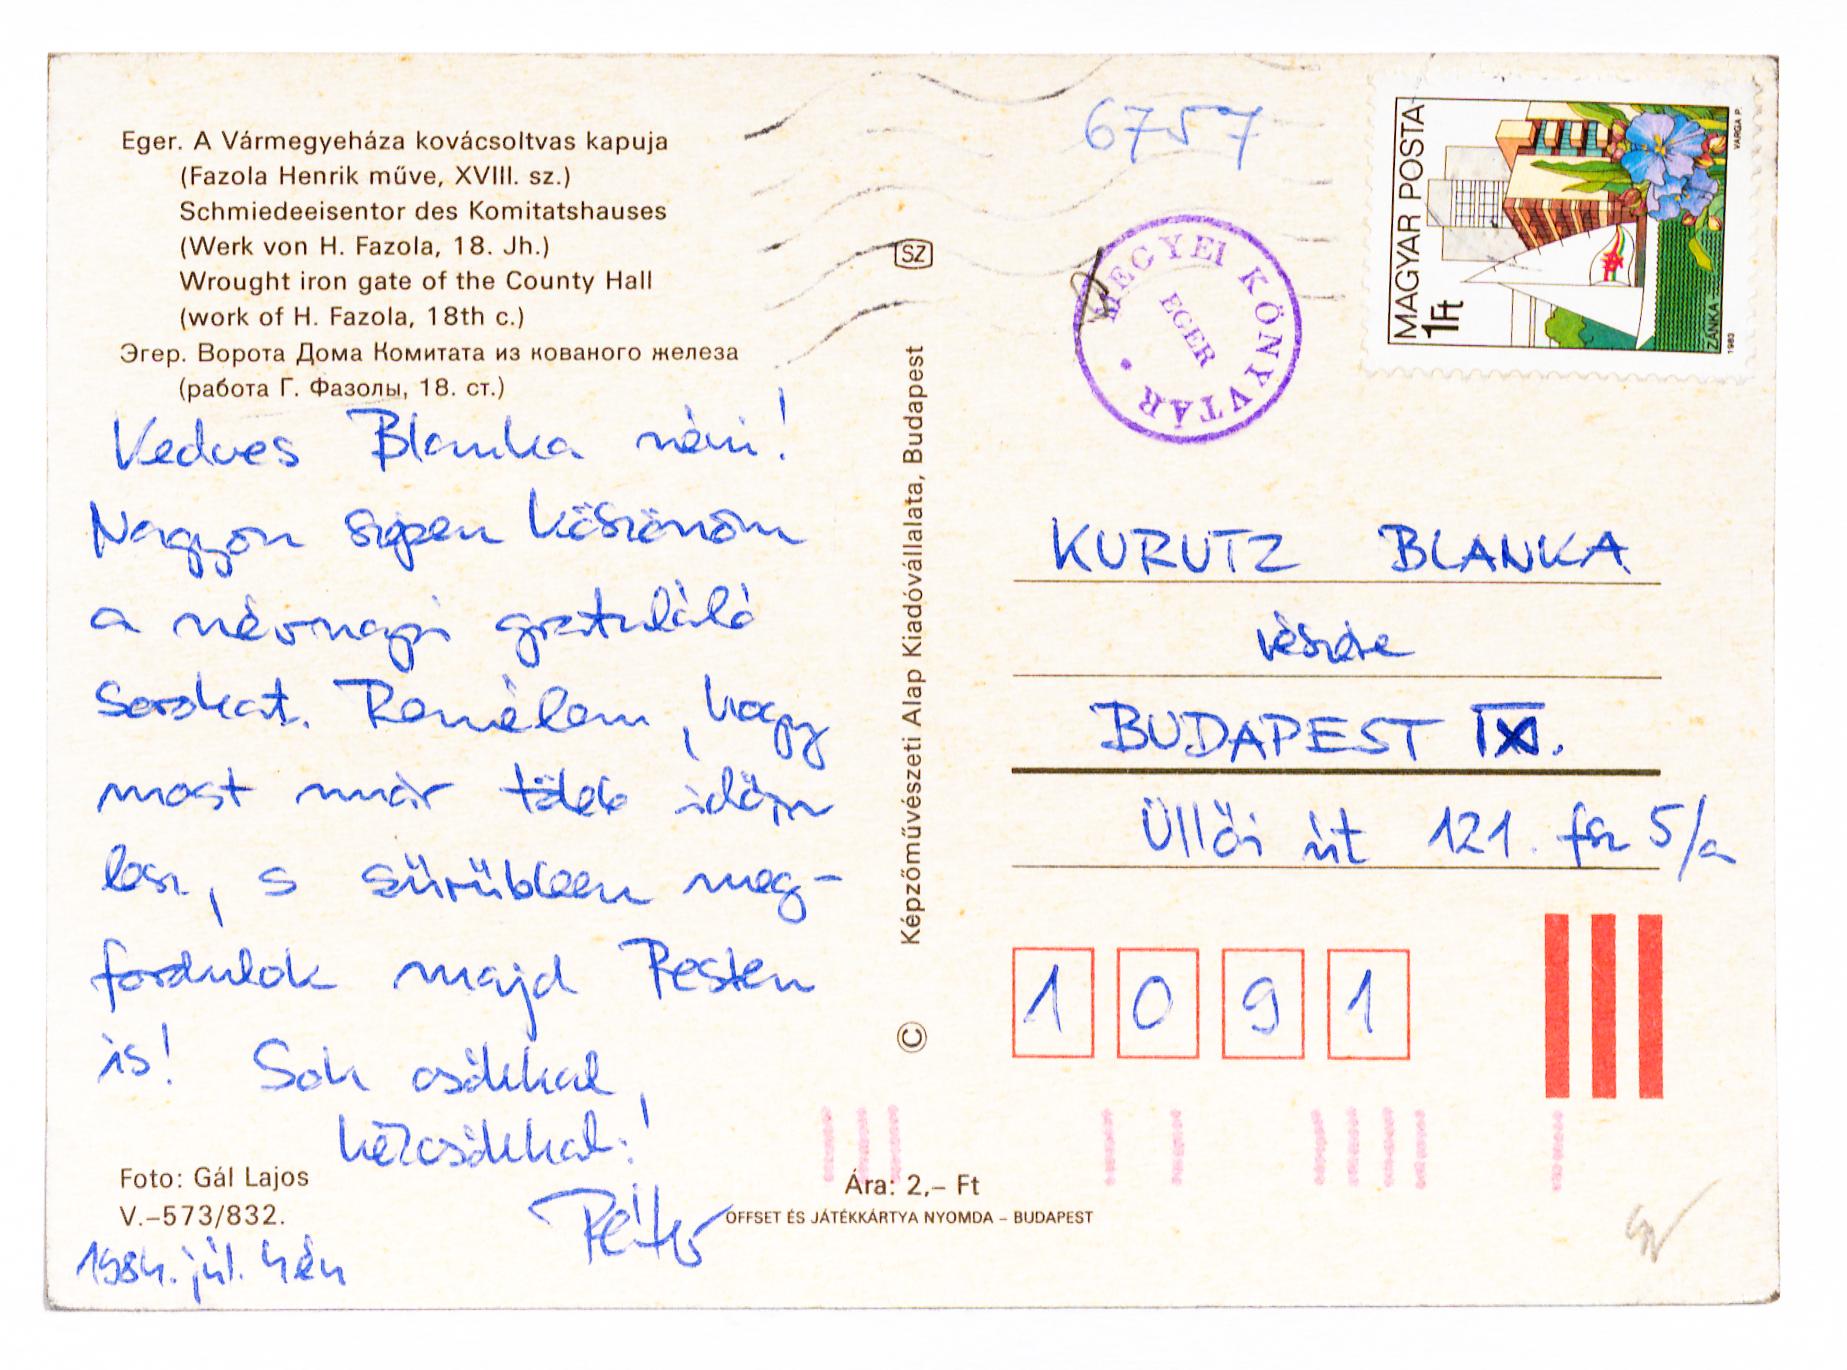 Eger. A Vármegyeháza kovácsoltvas kapuja
(Fazola Henrik műve, XVIII. sz.)
Schmiedeeisentor des Komitatshauses
(Werk von H. Fazola, 18. Jh.)
Wrought iron gate of the County Hall
(work of H. Fazola, 18th c.)
Эгер. Ворота Дома Комитата из кованого железа
(работа Г. Фазолы, 18. ст.)
Kedves Blanka néni!
Nagyon szépen köszönöm
a névnapi gratuláló
sorokat. Remélem, hogy
most már több időm
lesz, s sürübben meg-
fordulok majd Pesten
is! Sok csókkal,
kézcsókkal:!
Péter
Foto: Gál Lajos
V.–573/832.
1984. júl. 4én
Ára: 2,– Ft
OFFSET ÉS JÁTÉKKÁRTYA NYOMDA – BUDAPEST
SZ
Képzőművészeti Alap Kiadóvállalata, Budapest
©
6757
MEGYEI KÖNYVTÁR
EGER
MAGYAR POSTA
1Ft
ZÁNKA
1983
VARGA P.
KURUTZ BLANKA
részére
BUDAPEST IX.
Üllői út 121. fsz 5/a
1091